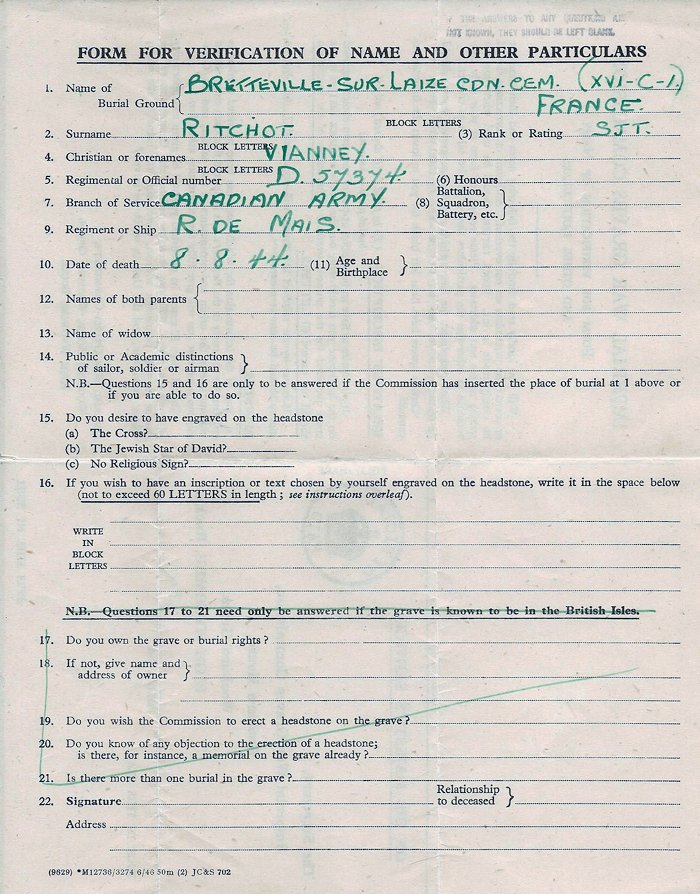 IF THE ANSWERS TO ANY QUESTIONS ARE
NOT KNOWN, THEY SHOULD BE LEFT BLANK.
FORM FOR VERIFICATION OF NAME AND OTHER PARTICULARS
1. Name of Burial Ground { BRETTEVILLE-SUR-LAIZE CDN. CEM. (XVI-C-1.)
FRANCE.
2. Surname RITCHOT. BLOCK LETTERS (3) Rank or Rating SJT.
BLOCK LETTERS
4. Christian or forenames VIANNEY.
BLOCK LETTERS
5. Regimental or Official number D. 57374. (6) Honours
7. Branch of Service CANADIAN ARMY. (8) Battalion, Squadron, Battery, etc. }
9. Regiment or Ship R. DE MAIS.
10. Date of death 8.8.44. (11) Age and Birthplace }
12. Names of both parents {
13. Name of widow
14. Public or Academic distinctions
of sailor, soldier or airman }
N.B.—Questions 15 and 16 are only to be answered if the Commission has inserted the place of burial at 1 above or
if you are able to do so.
15. Do you desire to have engraved on the headstone
(a) The Cross?
(b) The Jewish Star of David?
(c) No Religious Sign?
16. If you wish to have an inscription or text chosen by yourself engraved on the headstone, write it in the space below
(not to exceed 60 LETTERS in length; see instructions overleaf).
WRITE
IN
BLOCK
LETTERS
N.B.—Questions 17 to 21 need only be answered if the grave is known to be in the British Isles.
17. Do you own the grave or burial rights?
18. If not, give name and
address of owner }
19. Do you wish the Commission to erect a headstone on the grave?
20. Do you know of any objection to the erection of a headstone;
is there, for instance, a memorial on the grave already?
21. Is there more than one burial in the grave?
22. Signature Relationship to deceased }
Address
(9629) *M12736/3274 6/46 50m (2) JC&S 702